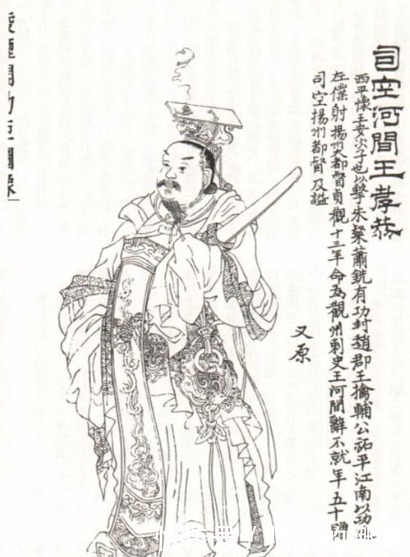 司空河間王孝恭
西平懷王安次子也以擊朱粲蕭銑有功封趙郡王擒輔公祏平江南以功
在僕射揚州大都督貞觀十三年命為觀州刺史王河間辭不就年五十贈
司空揚州都督及謚
又原
凌煙閣功臣圖像